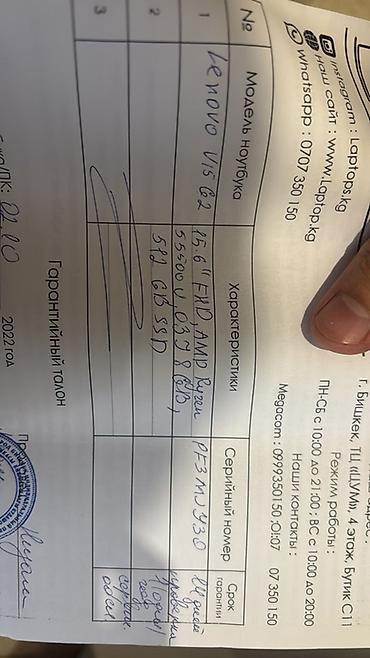 Instagram : Laptops.kg
Наш сайт : www.Laptop.kg
Whatsapp : 0707 350 150
г. Бишкек, ТЦ «ЦУМ», 4 этаж, Бутик С11
Режим работы :
ПН-СБ с 10:00 до 21:00 ; ВС с 10:00 до 20:00
Наши контакты :
Megacom : 0999350150 ;О!:07 07 350 150
№ Модель ноутбука Характеристики Серийный номер Срок гарантии
1 Lenovo V15 G2 15.6" FHD, AMD Ryzen PF3MJY30 14 дней
5 5500U, 8GB, проверки
512 GB SSD 1 один
год
сервис
2
3
Гарантийный талон
02.10 2022 год